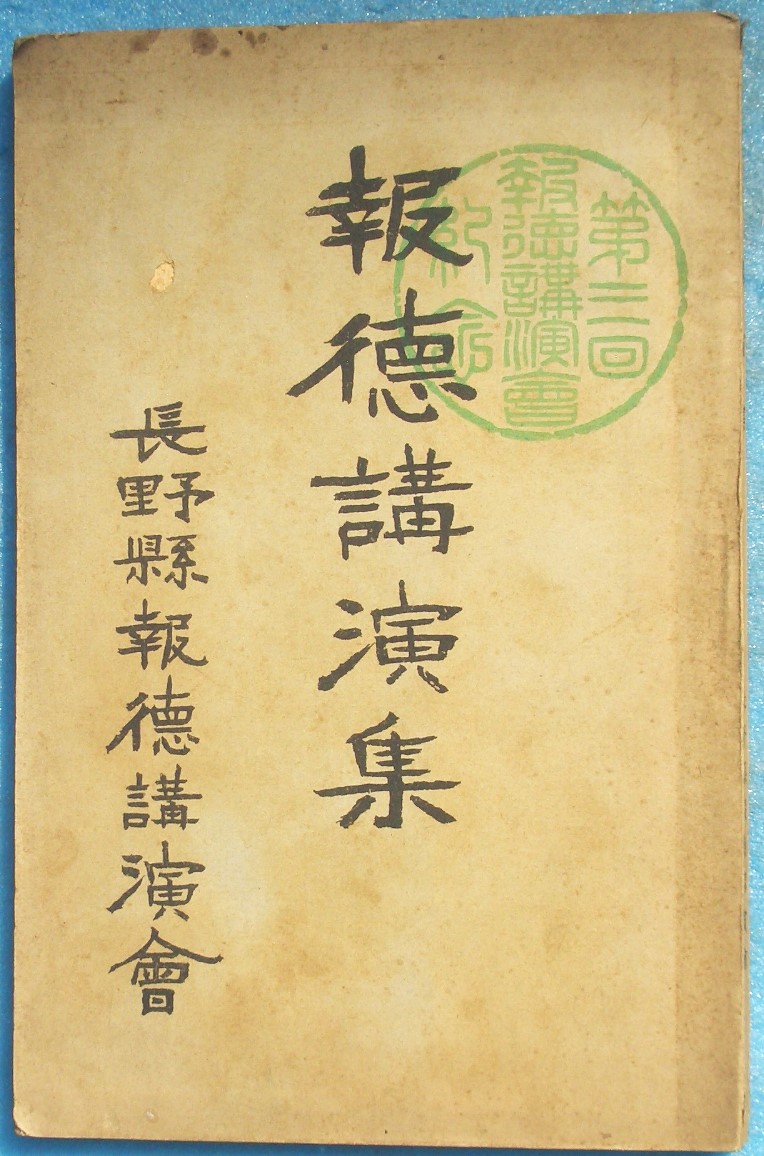 第三回
報徳講演會
紀念
報德講演集
長野縣報德講演會